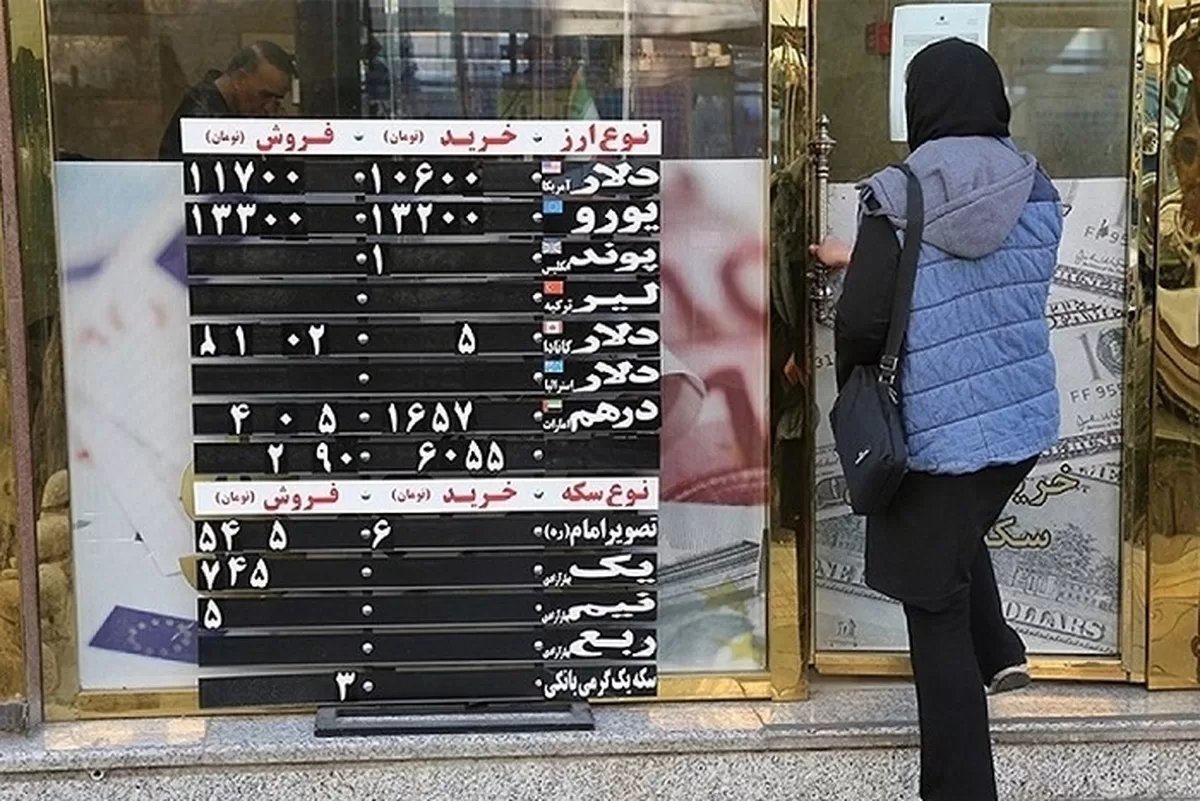 نوع ارز خرید (تومان) فروش (تومان)
دلار آمریکا ۱۰۶۰۰ ۱۱۷۰۰
یورو ۱۳۲۰۰ ۱۳۳۰۰
پوند انگلیس ۱
لیر ترکیه
دلار کانادا ۵ ۸۱ ۰۲
دلار استرالیا
درهم امارات ۱۶۵۷ ۴ ۰ ۵
۶۰۵۵ ۲ ۹۰
نوع سکه خرید (تومان) فروش (تومان)
تصویر امام (ره) ۶ ۵۴ ۵
یک بهار آزادی ۷۴۵
نیم بهار آزادی ۵
ربع بهار آزادی
سکه یک گرمی بانکی ۳
خرید
سکه
DOLLARS